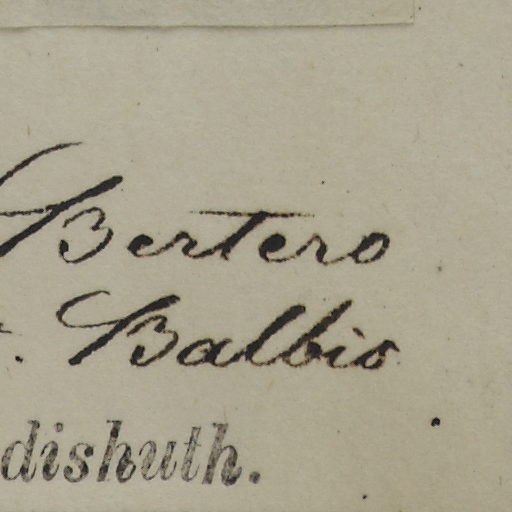 Bertero
. Balbis
dishuth.